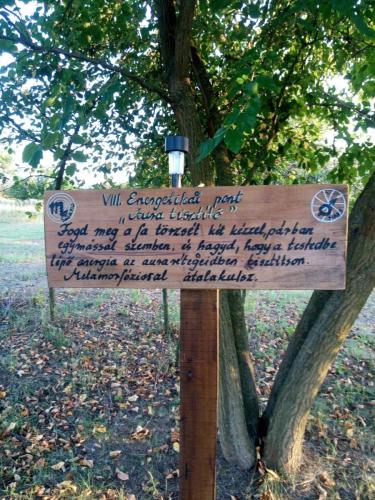 VIII. Energetikai pont
„Aura tisztító"
Fogd meg a fa törzsét két kézzel, párban
egymással szemben, és hagyd, hogy a testedbe
lépő energia az aurarétegeidben tisztítson.
Metamorfózissal átalakulsz.